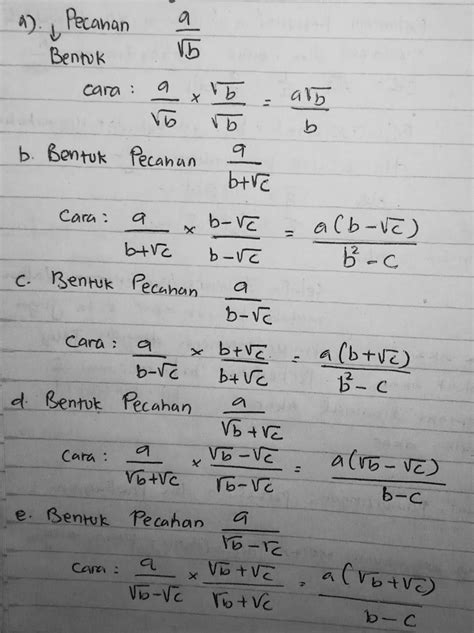 a). ↓ Pecahan a/√b
Bentuk
cara : a/√b × √b/√b = a√b/b
b. Bentuk Pecahan a/b+√c
Cara : a/b+√c × b-√c/b-√c = a(b-√c)/b²-c
c. Bentuk Pecahan a/b-√c
Cara : a/b-√c × b+√c/b+√c = a(b+√c)/b²-c
d. Bentuk Pecahan a/√b+√c
Cara : a/√b+√c × √b-√c/√b-√c = a(√b-√c)/b-c
e. Bentuk Pecahan a/√b-√c
Cara : a/√b-√c × √b+√c/√b+√c = a(√b+√c)/b-c